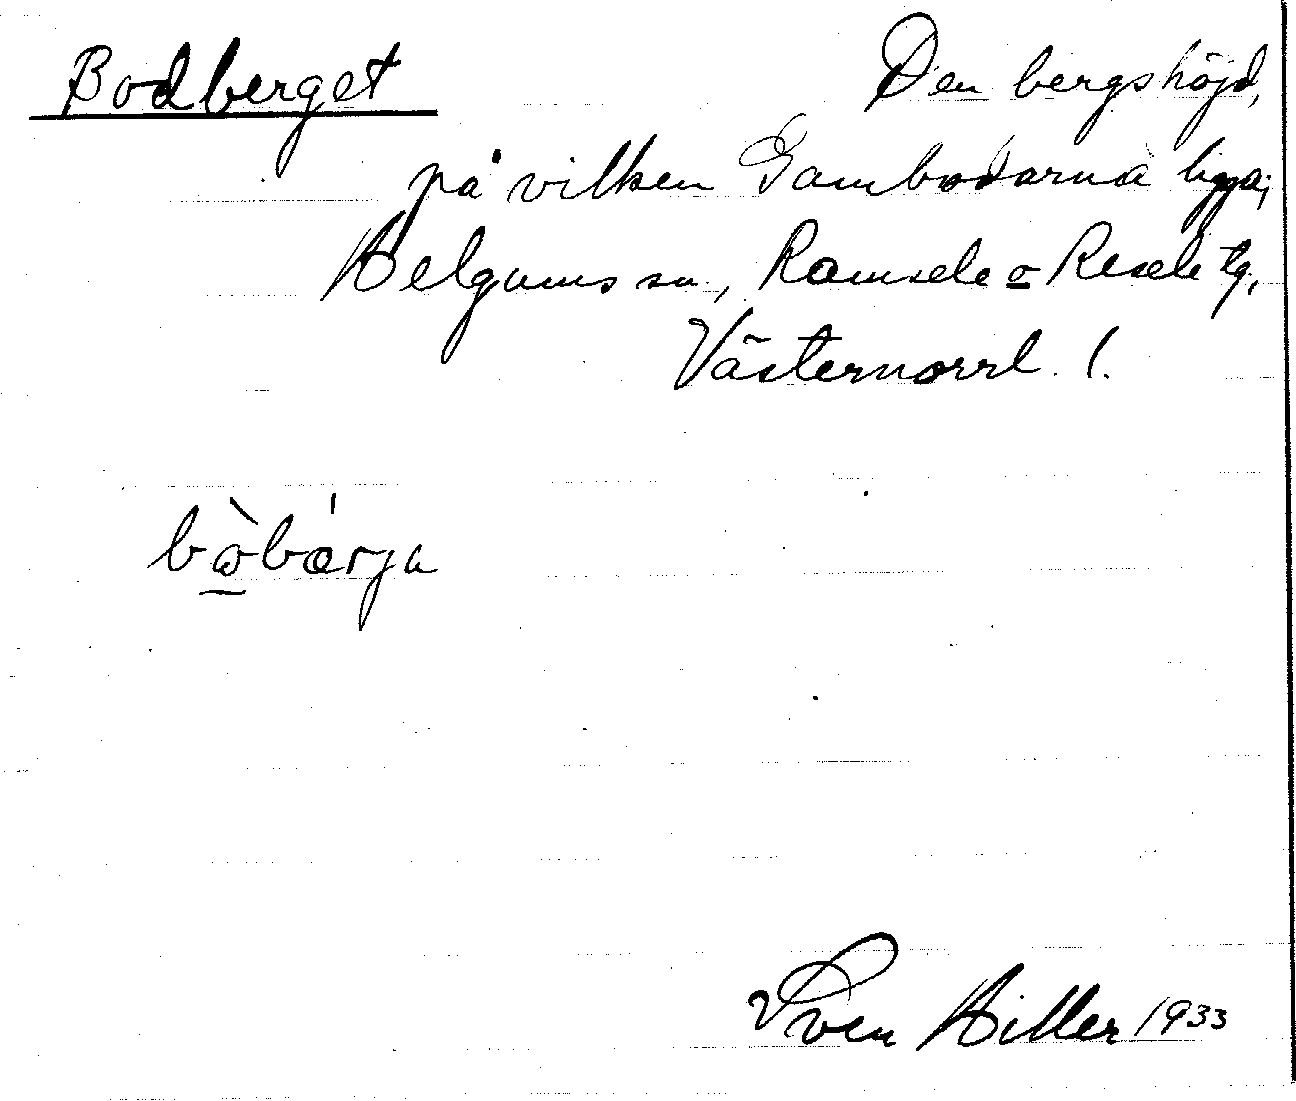 Bodberget
Den bergshöjd,
på vilken Gambodarna ligga;
Helgums sn, Ramsele o Resele tg,
Västernorrl. l.
bώ̀bárja
Sven Hiller 1933